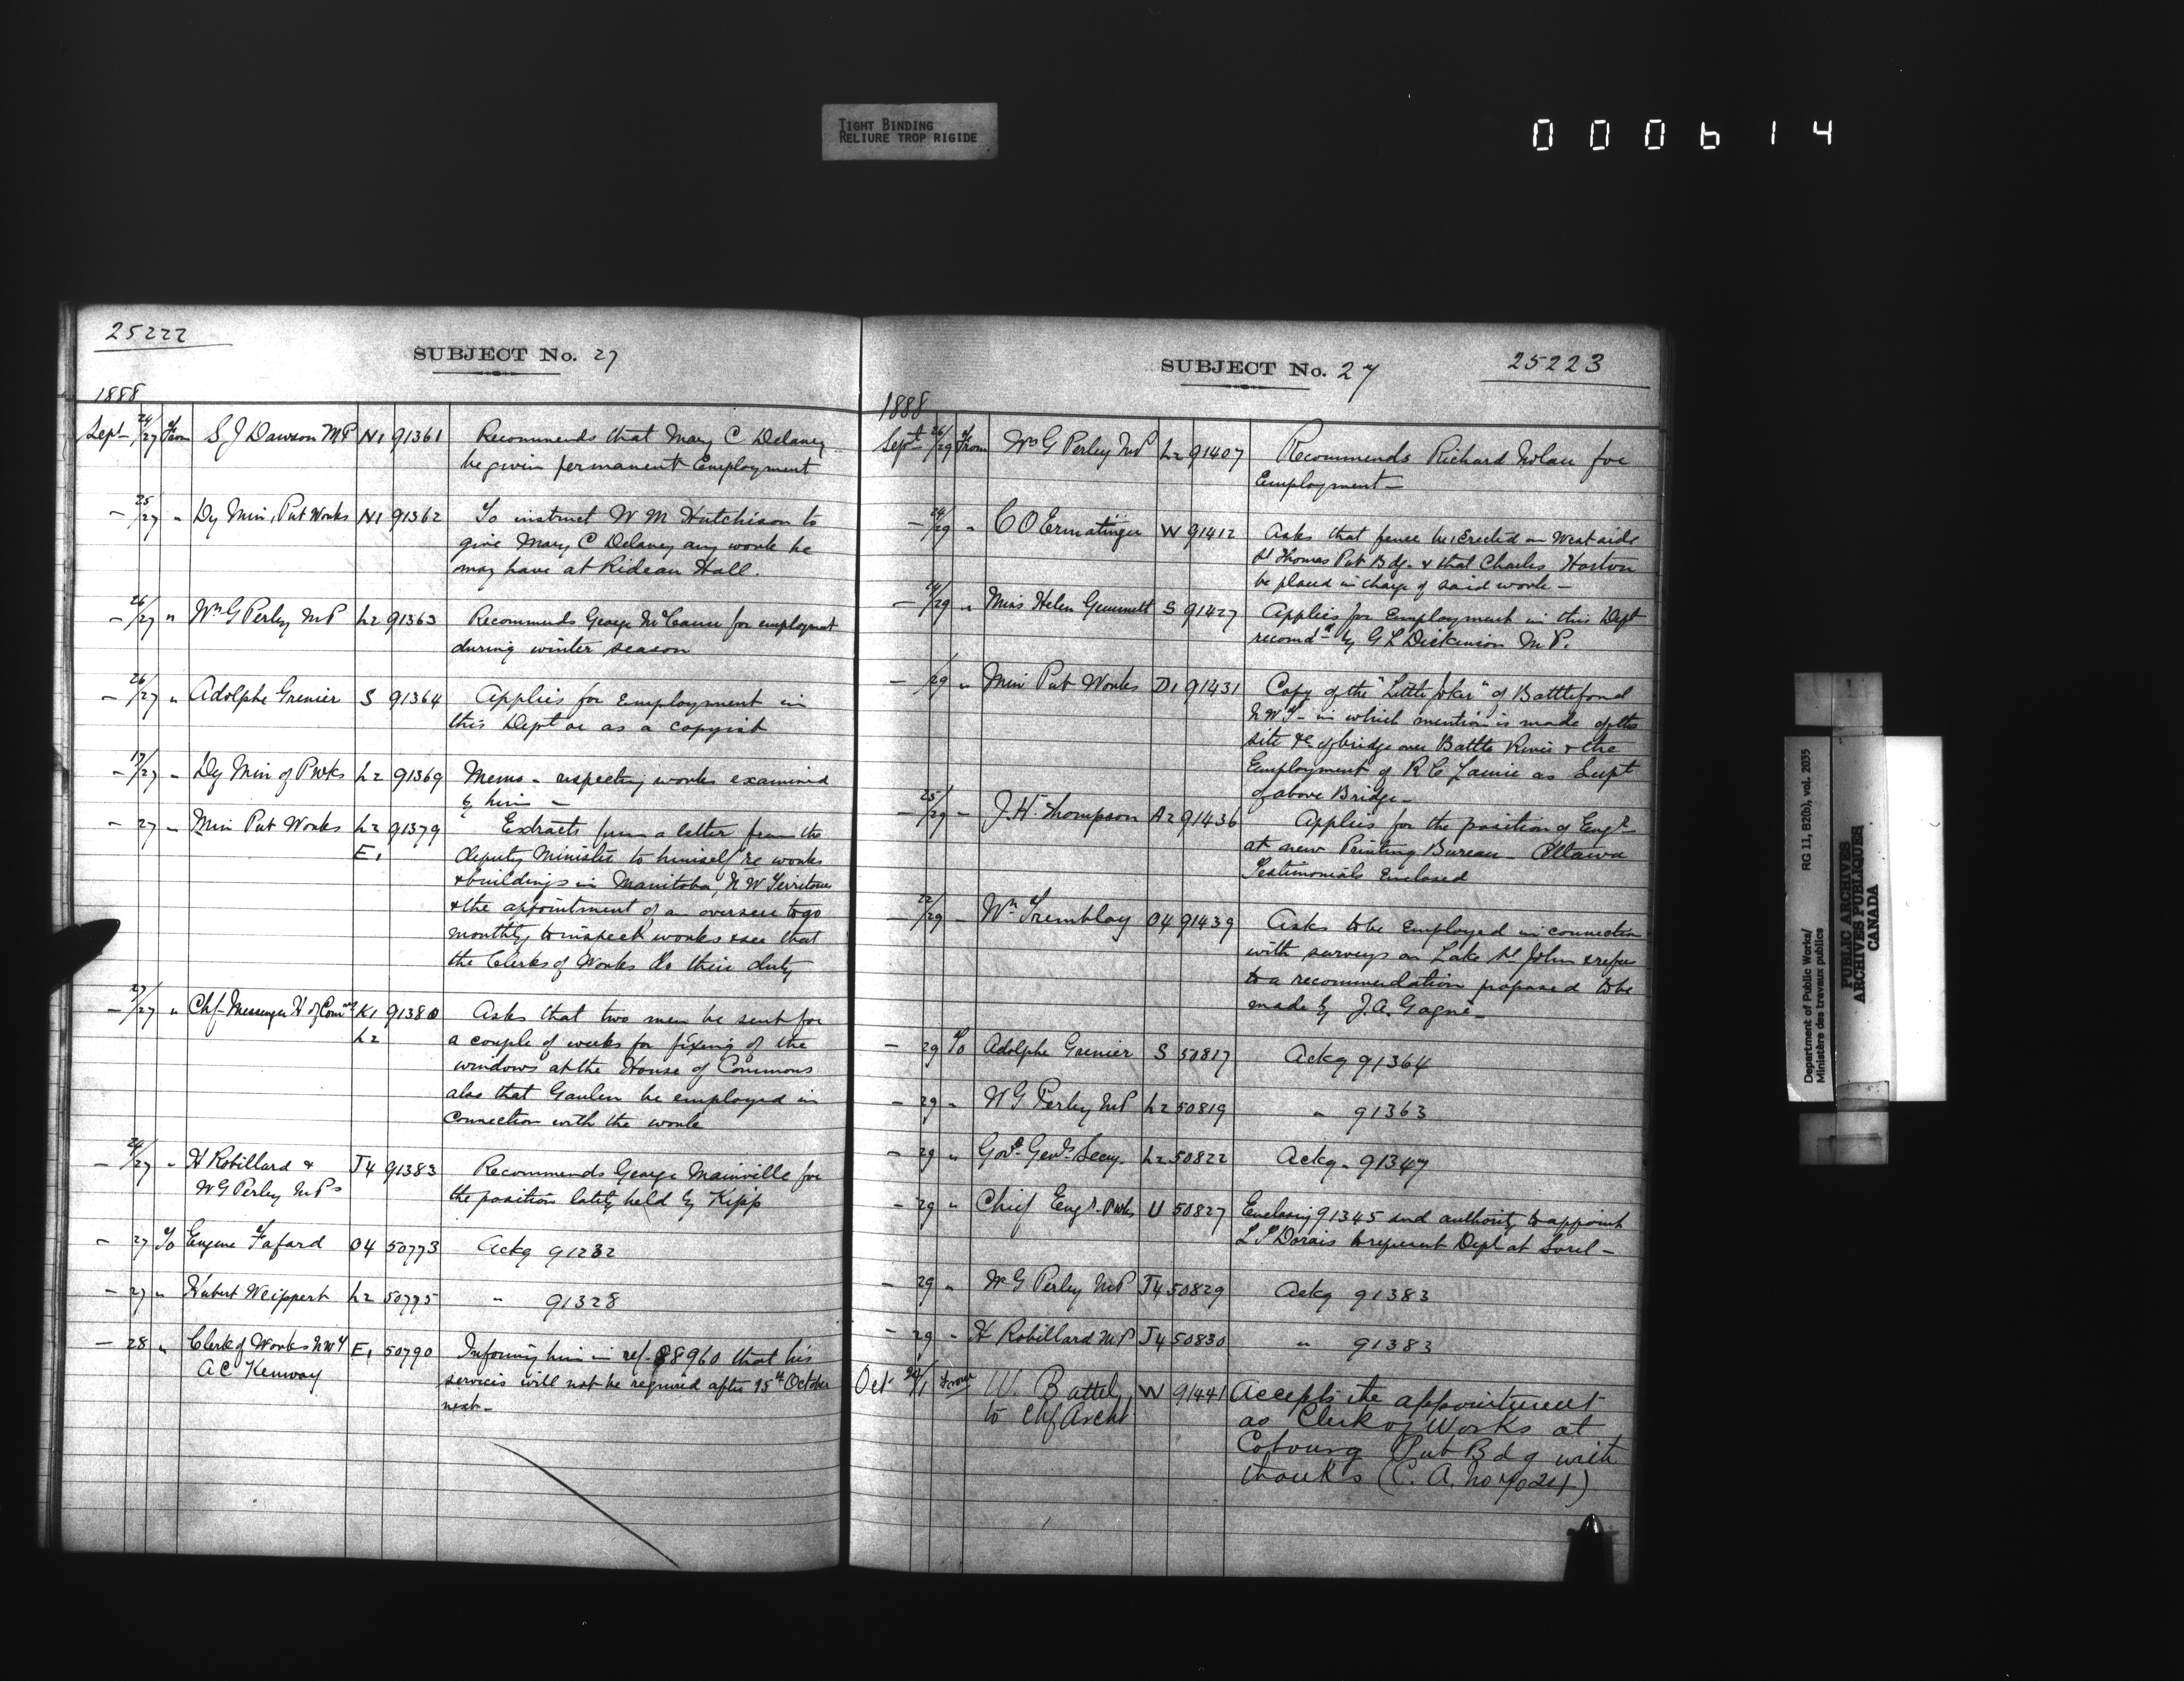 TIGHT BINDING
RELIURE TROP RIGIDE
000614
25222
SUBJECT No. 27
1888
Sept 24/27 From S J Dawson MP N1 91361 Recommends that Mary C Delaney
be given permanent Employment
— 25/27 " Dy Min, Pub Works N1 91362 To instruct W M Hutchison to
give Mary C Delaney any work he
may have at Rideau Hall.
— 26/27 " Wm G Perley MP L2 91363 Recommends George McCann for employmt
during winter season
— 26/27 " Adolphe Grenier S 91364 Applies for Employment in
this Dept or as a copyist
— 17/27 " Dy Min of Pwks L2 91369 Memo - respecting works examined
by him —
— 27 " Min Pub Works L2 91379 Extracts from a letter from the
E1 deputy Minister to himself re works
& buildings in Manitoba & N W Territories
& the appointment of an overseer to go
monthly to inspect works & see that
the Clerks of Works do their duty
— 27/27 " Chf Messenger H of Coms K1 91380 Asks that two men be sent for
L2 a couple of weeks for fixing of the
windows at the House of Commons
also that Gaulin be employed in
connection with the work
— 24/27 " H Robillard & J4 91383 Recommends George Mainville for
W G Perley MPs the position lately held by Kipp
— 27 To Eugene Fafard O4 50773 Ackg 91232
— 27 " Hubert Weippert L2 50775 " 91328
— 28 " Clerk of Works NWT E1 50790 Informing him in ref. 88960 that his
A C Kenway services will not be required after 15th October
next —
SUBJECT No. 27
25223
1888
Sept 26/29 From Wm G Perley MP L2 91407 Recommends Richard Nolan for
Employment —
— 24/29 " C O Ermatinger W 91412 Asks that fence be Erected on West side
St Thomas Pub Bdg. & that Charles Horton
be placed in charge of said work —
— 24/29 " Miss Helen Gemmell S 91427 Applies for Employment in this Dept
recomdd by G L Dickinson M.P.
— /29 " Min Pub Works D1 91431 Copy of the "Little Joker" of Battleford
N W T — in which mention is made of the
site &c of bridge over Battle River & the
Employment of R C Laurie as Supt
of above Bridge —
— 25/29 — J. H. Thompson A2 91436 Applies for the position of Engr
at new Printing Bureau — Ottawa
Testimonials Enclosed
— 22/29 — Wm Tremblay O4 91439 Asks to be Employed in connection
with surveys on Lake St John & refers
to a recommendation proposed to be
made by J. A. Gagné —
— 29 To Adolphe Grenier S 50817 Ackg 91364
— 29 " W G Perley MP L2 50819 " 91363
— 29 " Govr Genls Secy. L2 50822 Ackg. 91347
— 29 " Chief Engr. Pwks U 50827 Enclosing 91345 and authority to appoint
L P Dorais to represent Dept at Sorel —
— 29 " W G Perley MP J4 50829 Ackg 91383
— 29 " H Robillard MP J4 50830 " 91383
Oct /1 From W. Battely W 91441 Accepts the appointment
to Chf Archt as Clerk of Works at
Cobourg Pub Bdg with
thanks (C. A. No 7024)
Department of Public Works/
Ministère des travaux publics
RG 11, B2(b), vol. 2035
PUBLIC ARCHIVES
ARCHIVES PUBLIQUES
CANADA